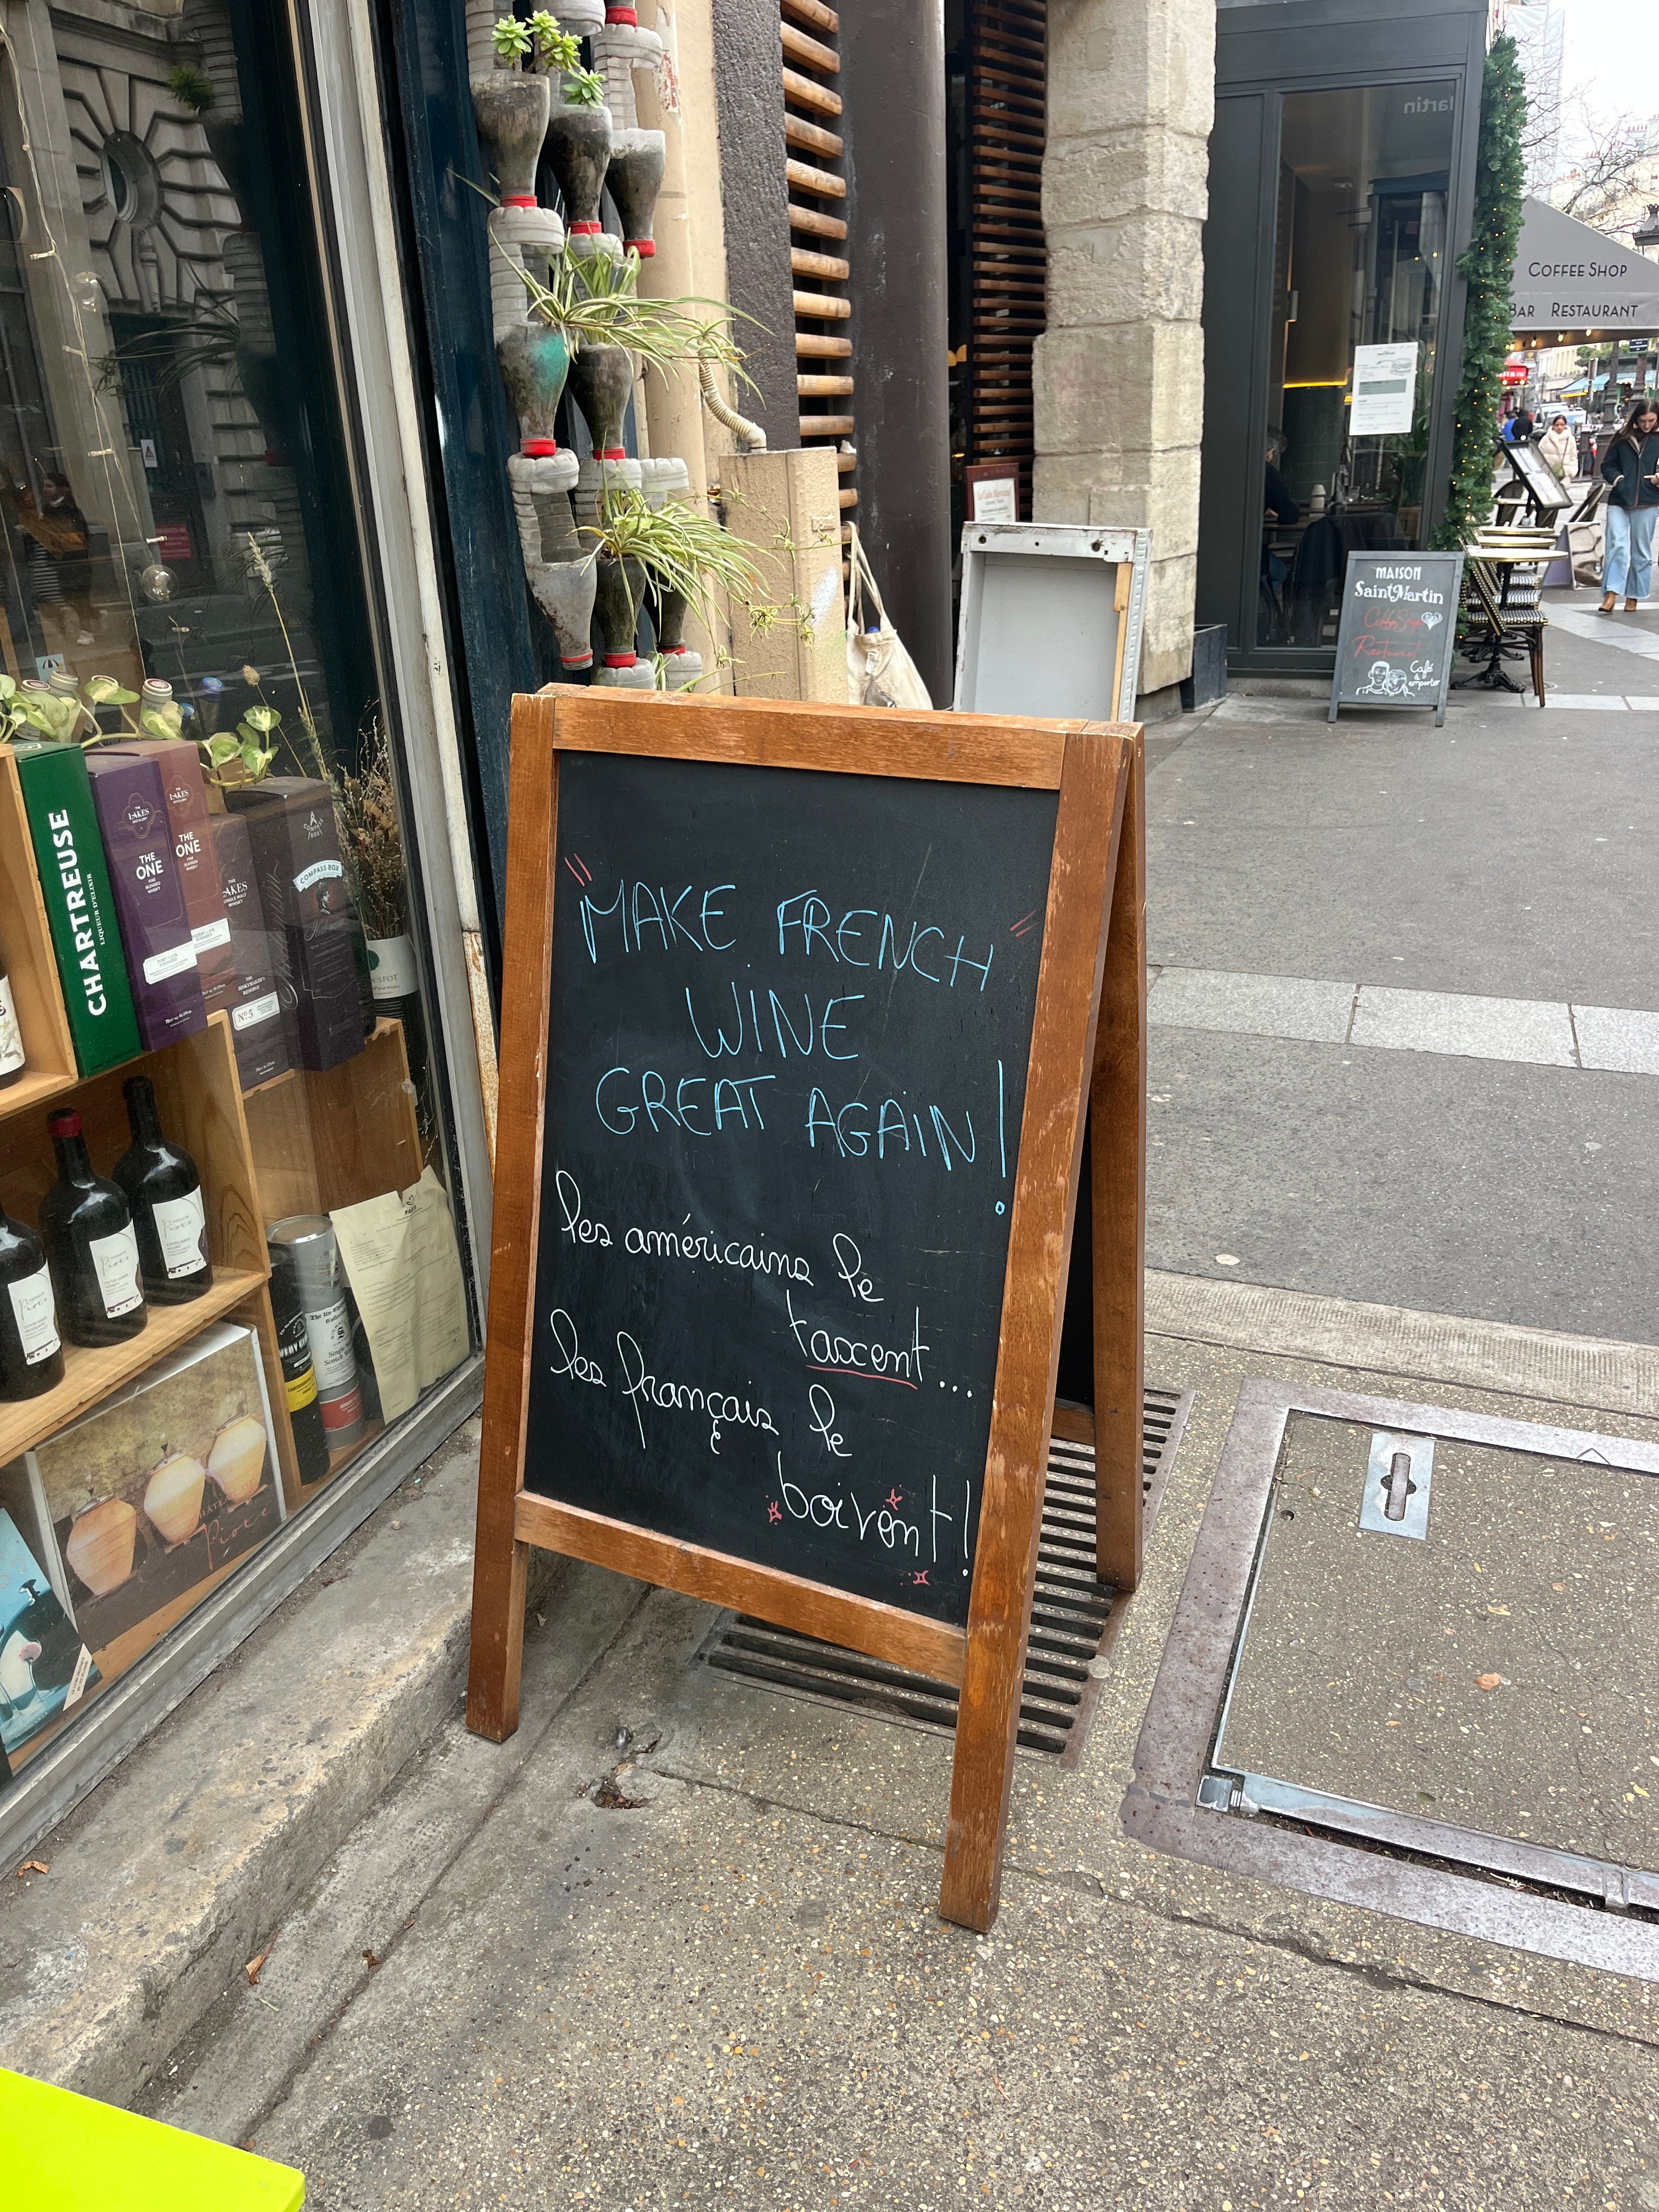 "MAKE FRENCH"
WINE
GREAT AGAIN!
les américains le
taxent...
les français le
boivent!
CHARTREUSE
LIQUEUR D'ELIXIR
THE
LAKES
THE
ONE
THE
LAKES
THE
ONE
LAKES
Nº5
COMPASS BOX
COFFEE SHOP
BAR RESTAURANT
MAISON
Saint Martin
Coffee Shop
Restaurant
Café
à
emporter